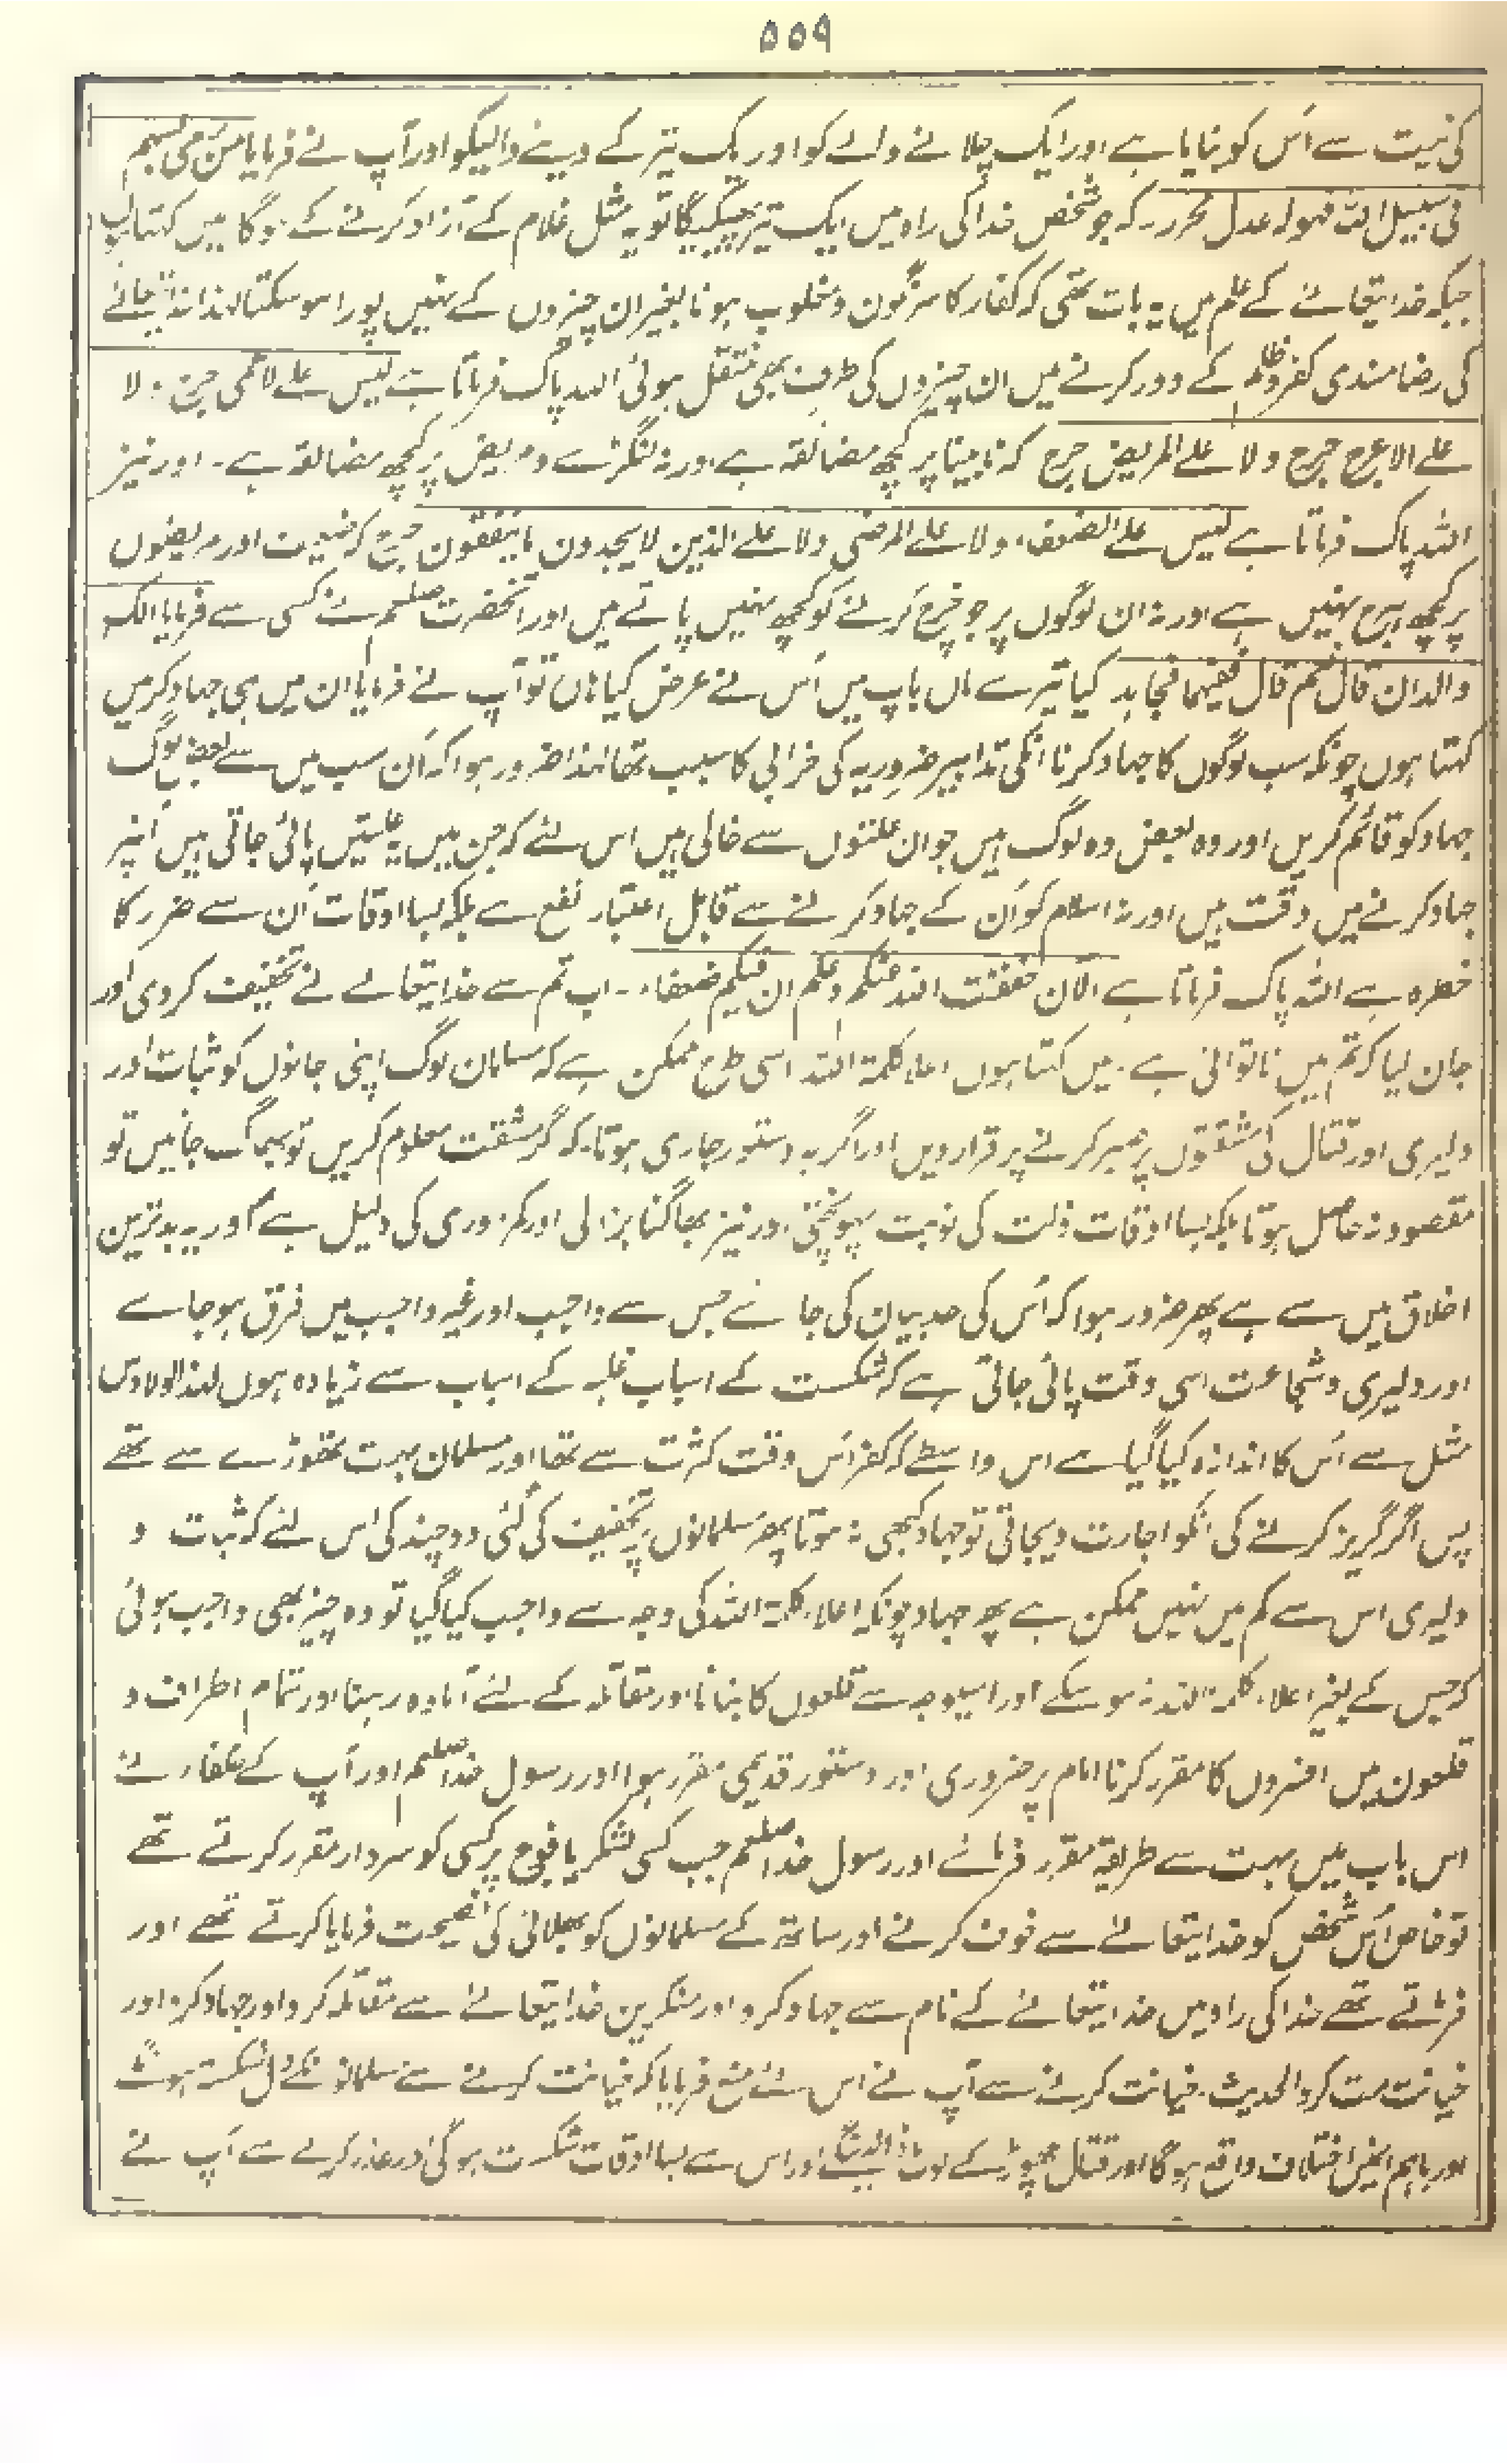 ۵۵۹
کی نیت سے اُس کو بنایا ہے اور ایک چلانے والے کو اور یک تیر کے دینے والیکو اور آپ نے فرمایا من رمی بسہم
فی سبیل اللہ فہولہ عدل محرر ۔ کہ جو شخص خدا کی راہ میں ایک تیر پھینکیگا تو یہ مثل غلام کے آزاد کرنے کے ہوگا میں کہتا ہوں
جبکہ خدایتعالےٰ کے علم میں یہ بات تھی کہ کفار کا سرنگون و مغلوب ہونا بغیر ان چیزوں کے نہیں پورا ہو سکتا لہٰذا خدایتعالےٰ
کی رضامندی کفر و ظلم کے دور کرنے میں ان چیزوں کی طرف بھی منتقل ہوئی اللہ پاک فرماتا ہے لیس علے الاعمی حرج ولا
علے الاعرج حرج ولا علے المریض حرج کہ نابینا پر کچھ مضائقہ ہے اور نہ لنگڑے و مریض پر کچھ مضائقہ ہے ۔ اور نیز
اللہ پاک فرماتا ہے لیس علے الضعفاء ولا علے المرضی ولا علے الذین لا یجدون ما ینفقون حرج کہ ضعیف اور مریضوں
پر کچھ ہرج نہیں ہے اور نہ ان لوگوں پر جو خرچ کرنے کو کچھ نہیں پاتے ہیں اور آنحضرت صلعم نے کسی سے فرمایا الک
والدان قال نعم قال ففیہما فجاہد کیا تیرے ماں باپ ہیں اُس نے عرض کیا ہاں تو آپ نے فرمایا ان میں ہی جہاد کر میں
کہتا ہوں چونکہ سب لوگوں کا جہاد کرنا انکی تدابیر ضروریہ کی خرابی کا سبب تھا لہٰذا ضرور ہوا کہ اُن سب میں سے بعض لوگ
جہاد کو قائم کریں اور وہ بعض وہ لوگ ہیں جو ان علتوں سے خالی ہیں اس لئے کہ جن میں یہ علتیں پائی جاتی ہیں اُنپر
جہاد کرنے میں دقت ہیں اور نہ اسلام کو اُن کے جہاد کرنے سے قابل اعتبار نفع ہے بلکہ بسا اوقات اُن سے ضرر کا
خطرہ ہے اللہ پاک فرماتا ہے الآن خفف اللہ عنکم وعلم ان فیکم ضعفاء ۔ اب تم سے خدایتعالےٰ نے تخفیف کر دی اور
جان لیا کہ تم میں ناتوانی ہے ۔ میں کہتا ہوں اعلا کلمۃ اللہ اسی طرح ممکن ہے کہ مسلمان لوگ اپنی جانوں کو ثبات اور
دلیری اور قتال کی مشقتوں پر صبر کرنے پر قرار دیں اور اگر یہ دستور جاری ہوتا کہ گر مشقت معلوم کریں تو بھاگ جائیں تو
مقصود نہ حاصل ہوتا بلکہ بسا اوقات ذلت کی نوبت پہونچتی اور نیز بھاگنا بزدلی اور کمزوری کی دلیل ہے اور یہ بدترین
اخلاق میں سے ہے پھر ضرور ہوا کہ اُس کی حد بیان کی جائے جس سے واجب اور غیر واجب میں فرق ہو جائے
اور دلیری و شجاعت اسی وقت پائی جاتی ہے کہ شکست کے اسباب غلبہ کے اسباب سے زیادہ ہوں لہٰذا اولا دس
مثل سے اُس کا اندازہ کیا گیا ہے اس واسطے کہ کفر اُس وقت کثرت سے تھا اور مسلمان بہت تھوڑے سے تھے
پس اگر گریز کرنے کی انکو اجازت دیجاتی تو جہاد کبھی نہ ہوتا پھر مسلمانوں پر تخفیف کی گئی دو چند کی اس لئے کہ ثبات و
دلیری اس سے کم میں نہیں ممکن ہے پھر جہاد چونکہ اعلاء کلمۃ اللہ کی وجہ سے واجب کیا گیا تو وہ چیز بھی واجب ہوئی
کہ جس کے بغیر اعلاء کلمۃ اللہ نہ ہو سکے اور اسیوجہ سے قلعوں کا بنانا اور مقاتلہ کے لئے آمادہ رہنا اور تمام اطراف و
قلعون میں افسروں کا مقرر کرنا امام پر ضروری اور دستور قدیمی مقرر ہوا اور رسول خدا صلعم اور آپ کے خلفاء نے
اس باب میں بہت سے طریقہ مقرر فرمائے اور رسول خدا صلعم جب کسی لشکر یا فوج پر کسی کو سردار مقرر کرتے تھے
تو خاص اُس شخص کو خدایتعالےٰ سے خوف کرنے اور ساتھ کے مسلمانوں کو بھلائی کی نصیحت فرمایا کرتے تھے اور
فرماتے تھے خدا کی راہ میں خدایتعالےٰ کے نام سے جہاد کرو اور منکرین خدایتعالےٰ سے مقاتلہ کرو اور جہاد کرو اور
خیانت مت کرو الحدیث ۔ خیانت کرنے سے آپ نے اس لئے منع فرمایا کہ خیانت کرنے سے مسلمانونکے دل شکستہ ہونگے
اور باہم اُنمیں اختلاف واقع ہوگا اور قتال چھوڑ کے لوٹ اور اس سے بسا اوقات شکست ہو گی اور غدر کرنے سے آپ نے